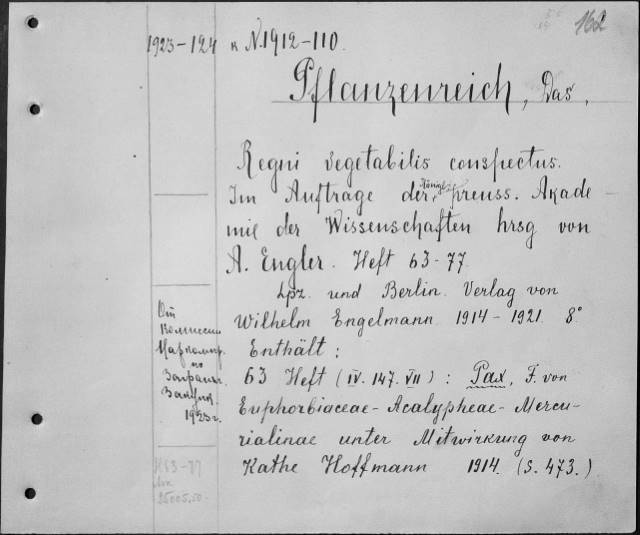 162
1923-124 к N.1912-110.
Pflanzenreich, Das,
Regni vegetabilis conspectus.
Im Auftrage der Königl. preuss. Akade-
mie der Wissenschaften hrsg von
A. Engler. Heft 63-77.
Lpz. und Berlin. Verlag von
Wilhelm Engelmann 1914-1921. 8°
Enthält:
63 Heft (IV. 147. VII): Pax, F. von
Euphorbiaceae-Acalypheae-Mercu-
rialinae unter Mitwirkung von
Kathe Hoffmann 1914. (S. 473.)
От
Комиссии
Наркомпр.
по
Загранич.
Закуп.
1923г.
H 63-77
25005.50.